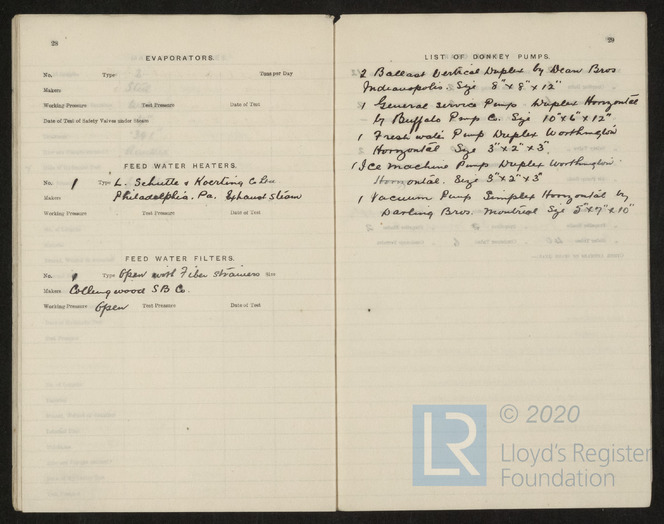 28
EVAPORATORS.
No. Type Tons per Day
Makers
Working Pressure Test Pressure Date of Test
Date of Test of Safety Valves under Steam
FEED WATER HEATERS.
No. 1 Type L. Schutte & Koerting Co
Makers Philadelphia. Pa. Exhaust Steam
Working Pressure Test Pressure Date of Test
FEED WATER FILTERS.
No. 1 Type Open with Fiber Strainers Size
Makers Collingwood S B Co.
Working Pressure Open Test Pressure Date of Test
29
LIST OF DONKEY PUMPS.
2 Ballast Vertical Duplex by Dean Bros
Indianapolis. Size 8" x 8" x 12"
1 General Service Pump Duplex Horizontal
by Buffalo Pump Co. Size 10" x 6" x 12"
1 Fresh water Pump Duplex Worthington
Horizontal Size 3" x 2" x 3"
1 Ice Machine Pump Duplex Worthington
Horizontal. Size 3" x 2" x 3"
1 Vacuum Pump Simplex Horizontal by
Darling Bros. Montreal Size 5" x 7" x 10"
LR
© 2020
Lloyd's Register
Foundation